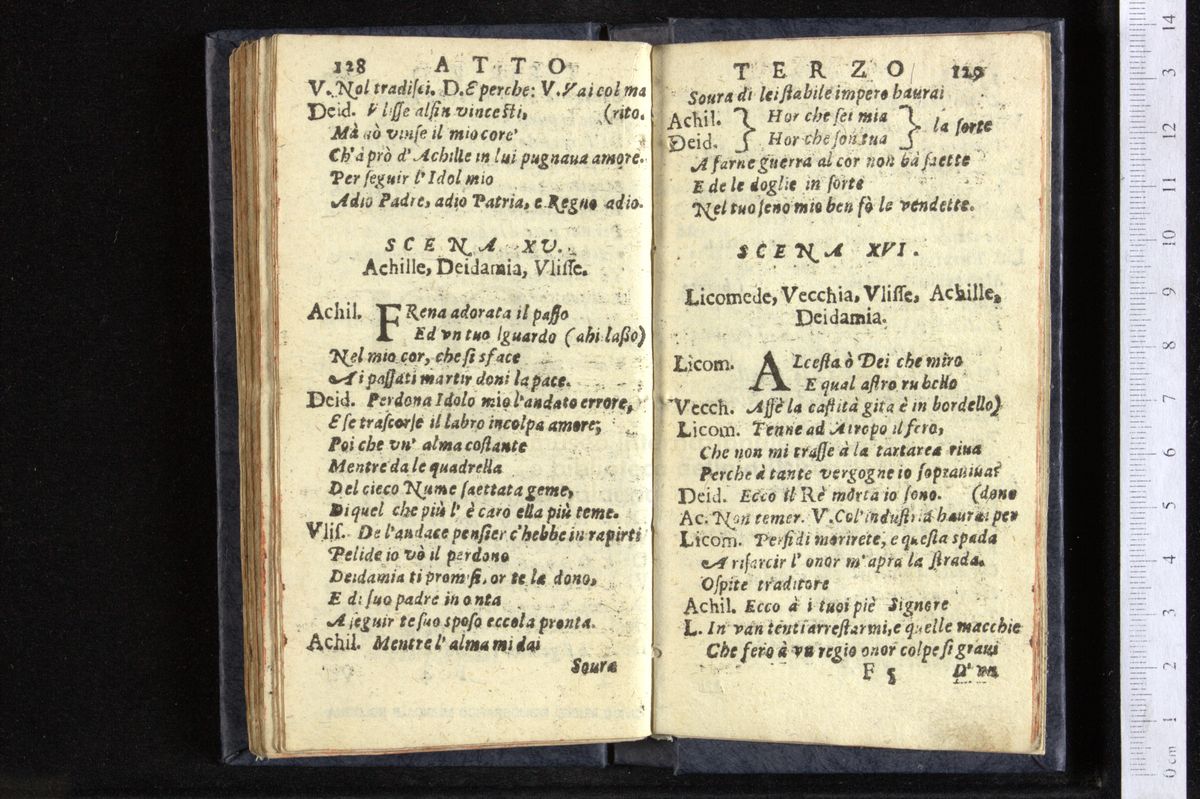 128 ATTO
V. Nol tradisci. D. E perche: V. Vai col ma
Deid. Vlisse alfin vincesti, (rito.
Mà nò vinse il mio core
Ch'à prò d'Achille in lui pugnaua amore.
Per seguir l'Idol mio
Adio Padre, adio Patria, e Regno adio.
SCENA XV.
Achille, Deidamia, Vlisse.
Achil. FRena adorata il passo
Ed vn tuo sguardo (ahi lasso)
Nel mio cor, che si sface
Ai passati martir doni la pace.
Deid. Perdona Idolo mio l'andato errore,
E se trascorse il labro incolpa amore;
Poi che vn' alma costante
Mentre da le quadrella
Del cieco Nume saettata geme,
Di quel che più l' è caro ella più teme.
Vlis. De l'andace pensier c'hebbe in rapirti
Pelide io vò il perdono
Deidamia ti promisi, or te la dono,
E di suo padre in onta
A seguir te suo sposo eccola pronta.
Achil. Mentre l' alma mi dai
Soura
TERZO 129
Soura di lei stabile impero haurai
Achil. } Hor che sei mia } la sorte
Deid. } Hor che son tua
A farne guerra al cor non hà saette
E de le doglie in sorte
Nel tuo seno mio ben fò le vendette.
SCENA XVI.
Licomede, Vecchia, Vlisse, Achille,
Deidamia.
Licom. ALcesta ò Dei che miro
E qual astro rubello
Vecch. Affè la castità gita è in bordello)
Licom. Tenne ad Atropo il fero,
Che non mi trasse à la tartarea riua
Perche à tante vergogne io soprauiua?
Deid. Ecco il Rè morta io sono. (dono
Ac. Non temer. V. Col'industria haurai per
Licom. Perfidi morirete, e questa spada
A risarcir l' onor m'apra la strada.
Ospite traditore
Achil. Ecco à i tuoi piè Signore
L. In van tenti arrestarmi, e quelle macchie
Che fero à vn regio onor colpe si graui
F 5 D' vn